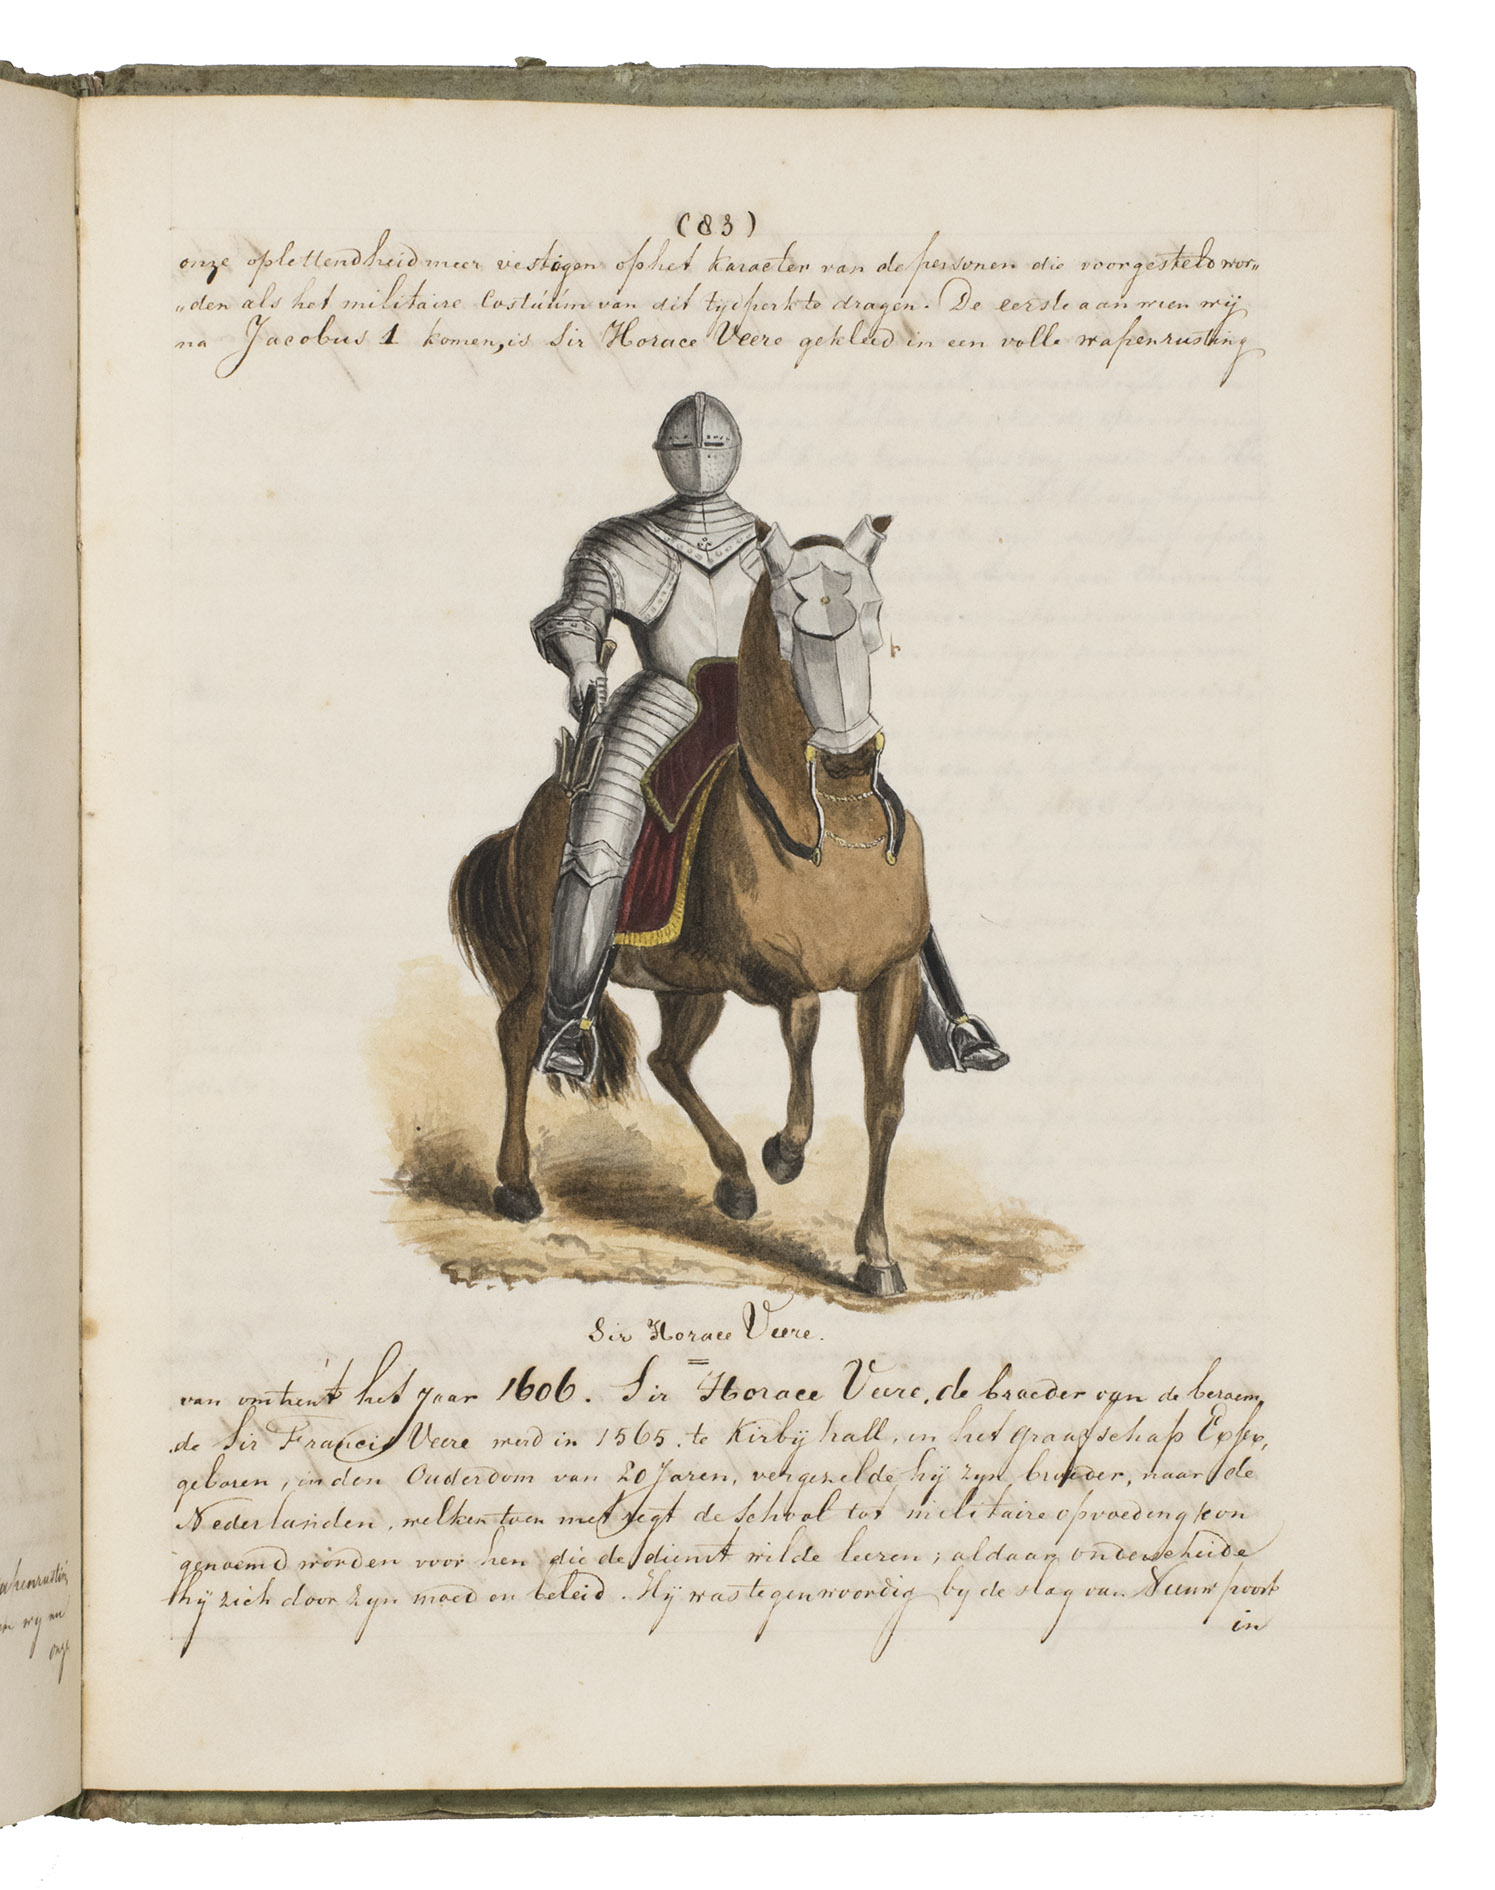 (83)
onze oplettendheid meer vestigen op het karacter van de personen die voorgesteld wor„
„den als het militaire Costúúm van dit tydperk te dragen. De eerste aan wien wij
na Jacobus 1 komen, is Sir Horace Veere gekleed in een volle wapenrusting
Sir Horace Veere.
van omtrent het jaar 1606. Sir Horace Veere, de broeder van de beroem,
,de Sir Francis Veere werd in 1565. te Kirbij hall, in het graafschap Essex,
geboren, in den Ouderdom van 20 Jaren, vergezelde hij zyn broeder, naar de
Nederlanden, welken toen met regt de School tot militaire opvoeding kon
genoemd worden voor hen die de dienst wilde leeren; aldaar onderscheide
hij zich door zyn moed en beleid. Hij was tegenwoordig by de slag van Nieuwpoort
in
wy nu
onze